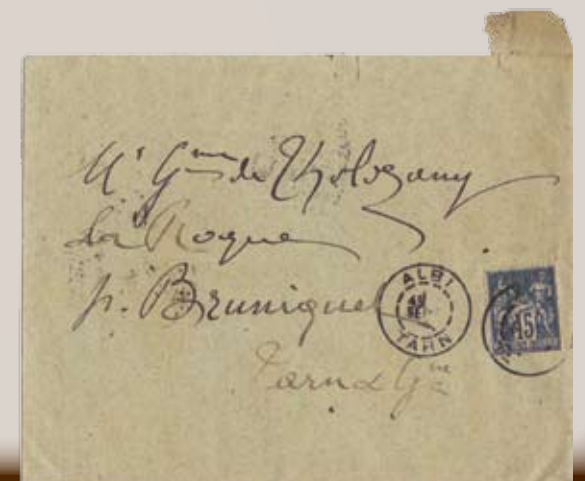 Mr Gme de Tholozany
La Roque
p. Bruniquel
Tarn & Gne
ALBI
TARN
15